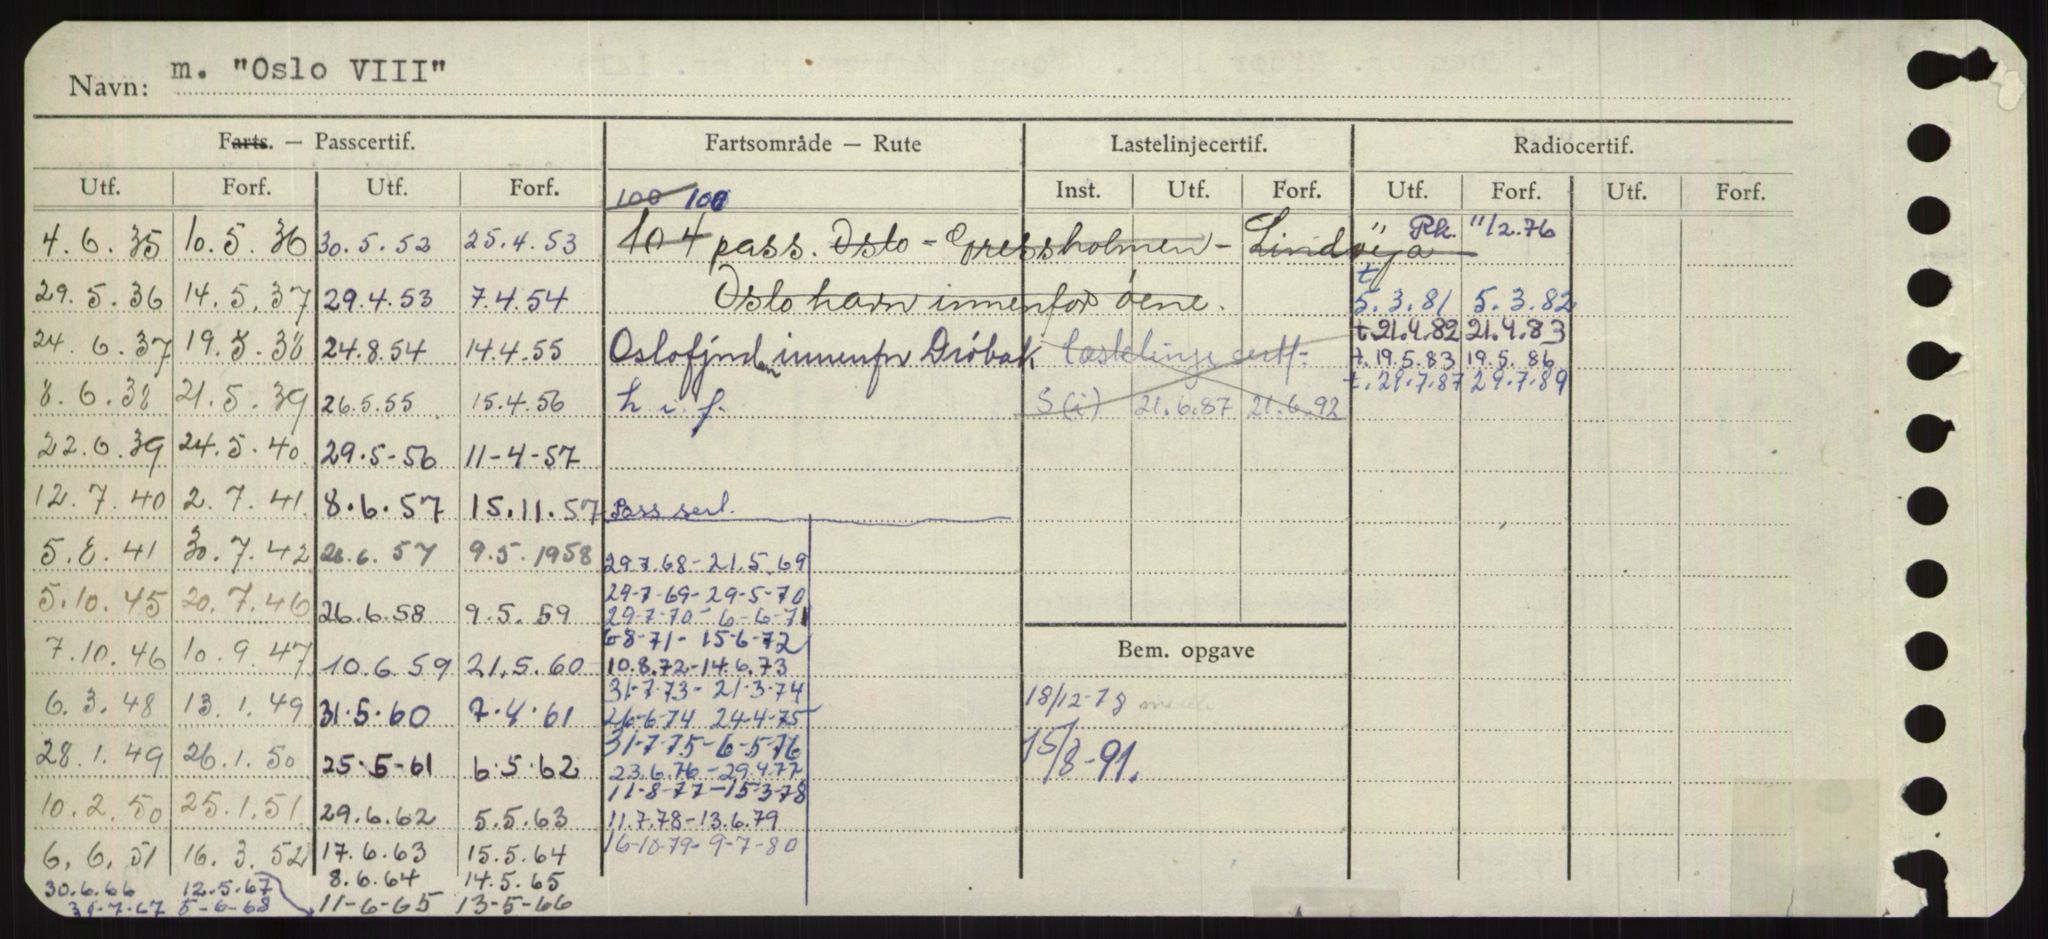 Navn: m. "Oslo VIII"
Farts. — Passcertif. Fartsområde — Rute Lastelinjecertif. Radiocertif.
Utf. Forf. Utf. Forf. Inst. Utf. Forf. Utf. Forf. Utf. Forf.
100 100
4.6.35 10.5.36 30.5.52 25.4.53 104 pass. Oslo - Gressholmen - Lindøya " Rk. "/2.76
29.5.36 14.5.37 29.4.53 7.4.54 Oslo havn innenfor øene. t 5.3.81 5.3.82
t.21.4.82 21.4.83
24.6.37 19.5.38 24.8.54 14.4.55 Oslofjorden innenfor Drøbak lastelinje sertf. t.19.5.83 19.5.86
t.29.7.87 29.7.89
8.6.38 21.5.39 26.5.55 15.4.56 h i f. S(i) 21.6.87 21.6.92
22.6.39 24.5.40 29.5-56 11-4-57
12.7.40 2.7.41 8.6.57 15.11.57 Pass serl.
5.8.41 30.7.42 26.6.57 9.5.1958 29.7.68-21.5.69
5.10.45 20.7.46 26.6.58 9.5.59 29-7-69-29-5-70
29-7-70-6-6-71
6-8-71-15-6-72
7.10.46 10.9.47 10.6.59 21.5.60 10.8.72-14.6.73 Bem. opgave
31-7-73-21-3-74
6.3.48 13.1.49 31.5.60 7.4.61 26-6-74 24-4-75 18/12-78
31-7-75-6-5-76
28.1.49 26.1.50 25-5-61 6.5.62 23.6.76-29.4.77 15/8-91.
11-8-77-15-3-78
10.2.50 25.1.51 29.6.62 5.5.63 11.7.78-13.6.79
6.6.51 16.3.52 17.6.63 15.5.64 16-10-79-9-7-80
30.6.66 12.5.67 8.6.64 14.5.65
31-7-67 5-6-68 11-6-65 13-5-66